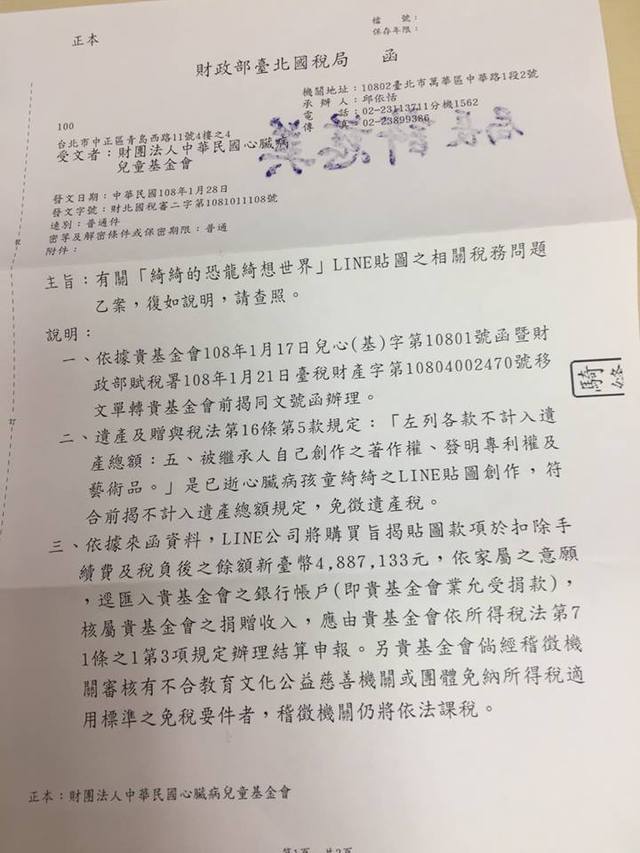 正本
檔　　號：
保存年限：
財政部臺北國稅局　函
機關地址：10802臺北市萬華區中華路1段2號
承 辦 人：邱依恬
電　　話：02-23113711分機1562
傳　　真：02-23899386
局長許慈美
100
台北市中正區青島西路11號4樓之4
受文者：財團法人中華民國心臟病
兒童基金會
發文日期：中華民國108年1月28日
發文字號：財北國稅審二字第1081011108號
速別：普通件
密等及解密條件或保密期限：普通
附件：
主旨：有關「綺綺的恐龍綺想世界」LINE貼圖之相關稅務問題
乙案，復如說明，請查照。
說明：
一、依據貴基金會108年1月17日兒心(基)字第10801號函暨財
政部賦稅署108年1月21日臺稅財產字第10804002470號移
文單轉貴基金會前揭同文號函辦理。
二、遺產及贈與稅法第16條第5款規定：「左列各款不計入遺
產總額：五、被繼承人自己創作之著作權、發明專利權及
藝術品。」是已逝心臟病孩童綺綺之LINE貼圖創作，符
合前揭不計入遺產總額規定，免徵遺產稅。
三、依據來函資料，LINE公司將購買旨揭貼圖款項於扣除手
續費及稅負後之餘額新臺幣4,887,133元，依家屬之意願
，逕匯入貴基金會之銀行帳戶(即貴基金會業允受捐款)，
核屬貴基金會之捐贈收入，應由貴基金會依所得稅法第7
1條之1第3項規定辦理結算申報。另貴基金會倘經稽徵機
關審核有不合教育文化公益慈善機關或團體免納所得稅適
用標準之免稅要件者，稽徵機關仍將依法課稅。
騎縫
正本：財團法人中華民國心臟病兒童基金會
第1頁　共2頁